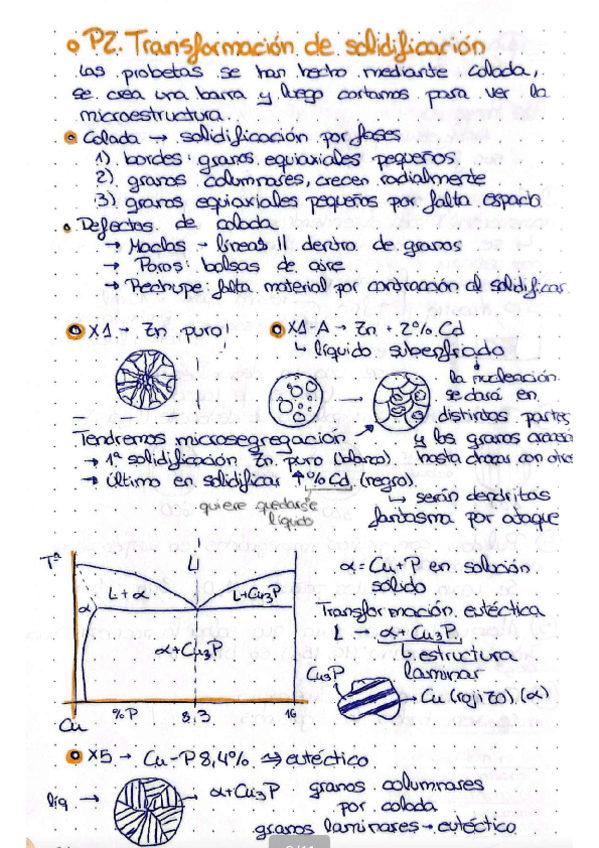 P2. Transformación de solidificación
Las probetas se han hecho mediante colada,
se crea una barra y luego cortamos para ver la
microestructura.
Colada → solidificación por fases
1) bordes: granos equiaxiales pequeños.
2) granos columnares, crecen radialmente
3) granos equiaxiales pequeños por falta espacio
Defectos de colada
→ Maclas - líneas || dentro de granos
→ Poros: bolsas de aire
→ Rechupe: falta material por contracción al solidificar
X1 → Zn puro!
X1-A → Zn + 2% Cd
↳ líquido subenfriado
la nucleación
se dará en
distintas partes
y los granos crecerán
hasta chocar con otros
Tendremos microsegregación
→ 1ª solidificación Zn puro (blanco).
→ último en solidificar ↑% Cd (negro).
quiere quedarse
líquido
↳ serán dendritas
fantasma por ataque
Tª
L
L+α
L+Cu3P
α
α+Cu3P
Cu
% P
8,3
16
α = Cu+P en solución
sólido
Transformación eutéctica
L → α + Cu3P
↳ estructura
laminar
Cu3P
→ Cu (rojizo) (α)
X5 → Cu-P 8,4% ⇒ eutéctico
líq →
→ α+Cu3P
granos columnares
por colada
granos laminares → eutéctico